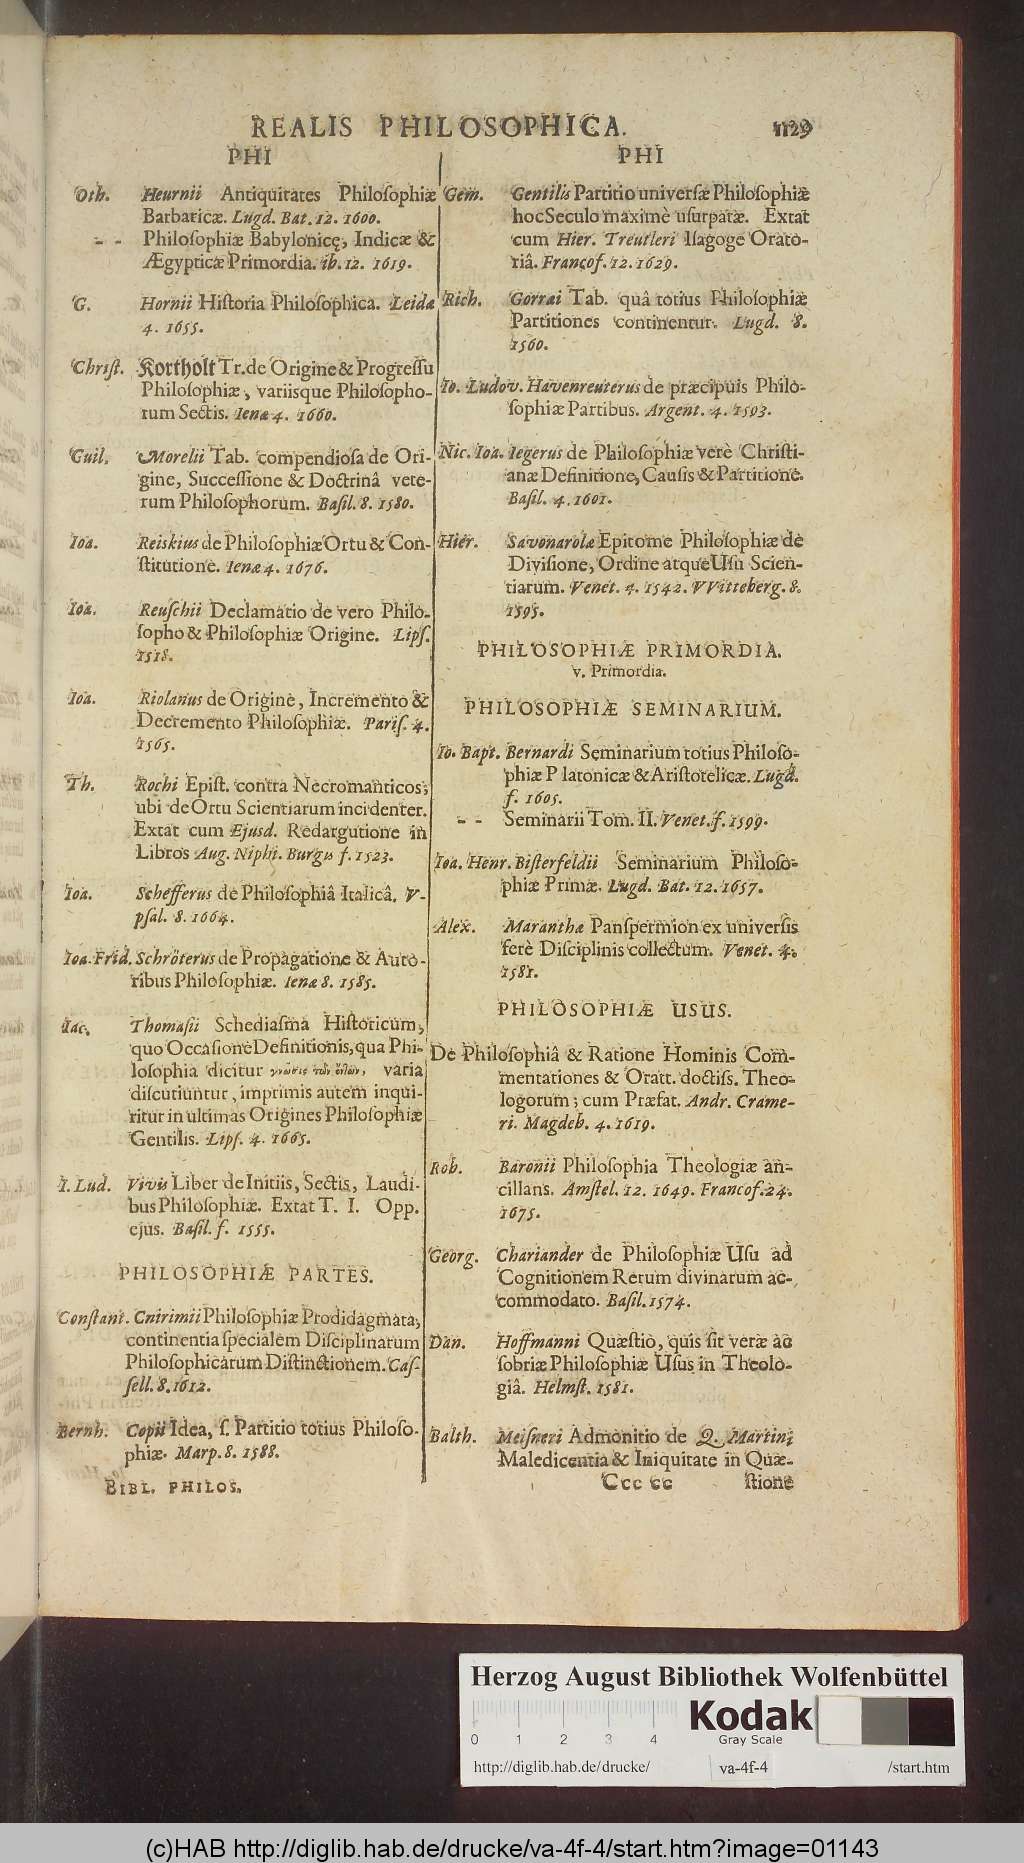 REALIS PHILOSOPHICA. 1129
PHI
Oth. Heurnii Antiquitates Philosophiæ
Barbaricæ. Lugd. Bat. 12. 1600.
- - Philosophiæ Babylonicę, Indicæ &
Ægypticæ Primordia. ib. 12. 1619.
G. Hornii Historia Philosophica. Leidæ
4. 1655.
Christ. Kortholt Tr. de Origine & Progressu
Philosophiæ, variisque Philosopho-
rum Sectis. Ienæ 4. 1660.
Guil. Morelii Tab. compendiosa de Ori-
gine, Successione & Doctrinâ vete-
rum Philosophorum. Basil. 8. 1580.
Ioa. Reiskius de Philosophiæ Ortu & Con-
stitutione. Ienæ 4. 1676.
Ioa. Reuschii Declamatio de vero Philo-
sopho & Philosophiæ Origine. Lips.
1518.
Ioa. Riolanus de Origine, Incremento &
Decremento Philosophiæ. Paris. 4.
1565.
Th. Rochi Epist. contra Necromanticos;
ubi de Ortu Scientiarum incidenter.
Extat cum Ejusd. Redargutione in
Libros Aug. Niphi. Burgis f. 1523.
Ioa. Schefferus de Philosophiâ Italicâ. V-
psal. 8. 1664.
Ioa. Frid. Schröterus de Propagatione & Auto-
ribus Philosophiæ. Ienæ 8. 1585.
Iac. Thomasii Schediasma Historicum,
quo Occasione Definitionis, qua Phi-
losophia dicitur γνῶσις τῶν ὄντων, varia
discutiuntur, imprimis autem inqui-
ritur in ultimas Origines Philosophiæ
Gentilis. Lips. 4. 1665.
I. Lud. Vivis Liber de Initiis, Sectis, Laudi-
bus Philosophiæ. Extat T. I. Opp.
ejus. Basil. f. 1555.
PHILOSOPHIÆ PARTES.
Constant. Cnirimii Philosophiæ Prodidagmata,
continentia specialem Disciplinarum
Philosophicarum Distinctionem. Cas-
sell. 8. 1612.
Bernh. Copii Idea, s. Partitio totius Philoso-
phiæ. Marp. 8. 1588.
BIBL. PHILOS.
PHI
Gem. Gentilis Partitio universæ Philosophiæ
hoc Seculo maximè usurpatæ. Extat
cum Hier. Treutleri Isagoge Orato-
riâ. Francof. 12. 1629.
Rich. Gorræi Tab. quâ totius Philosophiæ
Partitiones continentur. Lugd. 8.
1560.
Io. Ludov. Havenreuterus de præcipuis Philo-
sophiæ Partibus. Argent. 4. 1593.
Nic. Ioa. Iegerus de Philosophiæ verè Christi-
anæ Definitione, Causis & Partitione.
Basil. 4. 1601.
Hier. Savonarolæ Epitome Philosophiæ de
Divisione, Ordine atque Usu Scien-
tiarum. Venet. 4. 1542. VVitteberg. 8.
1595.
PHILOSOPHIÆ PRIMORDIA.
v. Primordia.
PHILOSOPHIÆ SEMINARIUM.
Io. Bapt. Bernardi Seminarium totius Philoso-
phiæ Platonicæ & Aristotelicæ. Lugd.
f. 1605.
- - Seminarii Tom. II. Venet. f. 1599.
Ioa. Henr. Bisterfeldii Seminarium Philoso-
phiæ Primæ. Lugd. Bat. 12. 1657.
Alex. Maranthæ Panspermion ex universis
ferè Disciplinis collectum. Venet. 4.
1581.
PHILOSOPHIÆ USUS.
De Philosophiâ & Ratione Hominis Com-
mentationes & Oratt. doctiss. Theo-
logorum; cum Præfat. Andr. Crame-
ri. Magdeb. 4. 1619.
Rob. Baronii Philosophia Theologiæ an-
cillans. Amstel. 12. 1649. Francof. 24.
1675.
Georg. Chariander de Philosophiæ Usu ad
Cognitionem Rerum divinarum ac-
commodato. Basil. 1574.
Dan. Hoffmanni Quæstio, quis sit veræ ac
sobriæ Philosophiæ Usus in Theolo-
giâ. Helmst. 1581.
Balth. Meisneri Admonitio de Q. Martini
Maledicentia & Iniquitate in Quæ-
Ccc cc stione
Herzog August Bibliothek Wolfenbüttel
0 1 2 3 4
Kodak
Gray Scale
http://diglib.hab.de/drucke/ va-4f-4 /start.htm
(c)HAB http://diglib.hab.de/drucke/va-4f-4/start.htm?image=01143